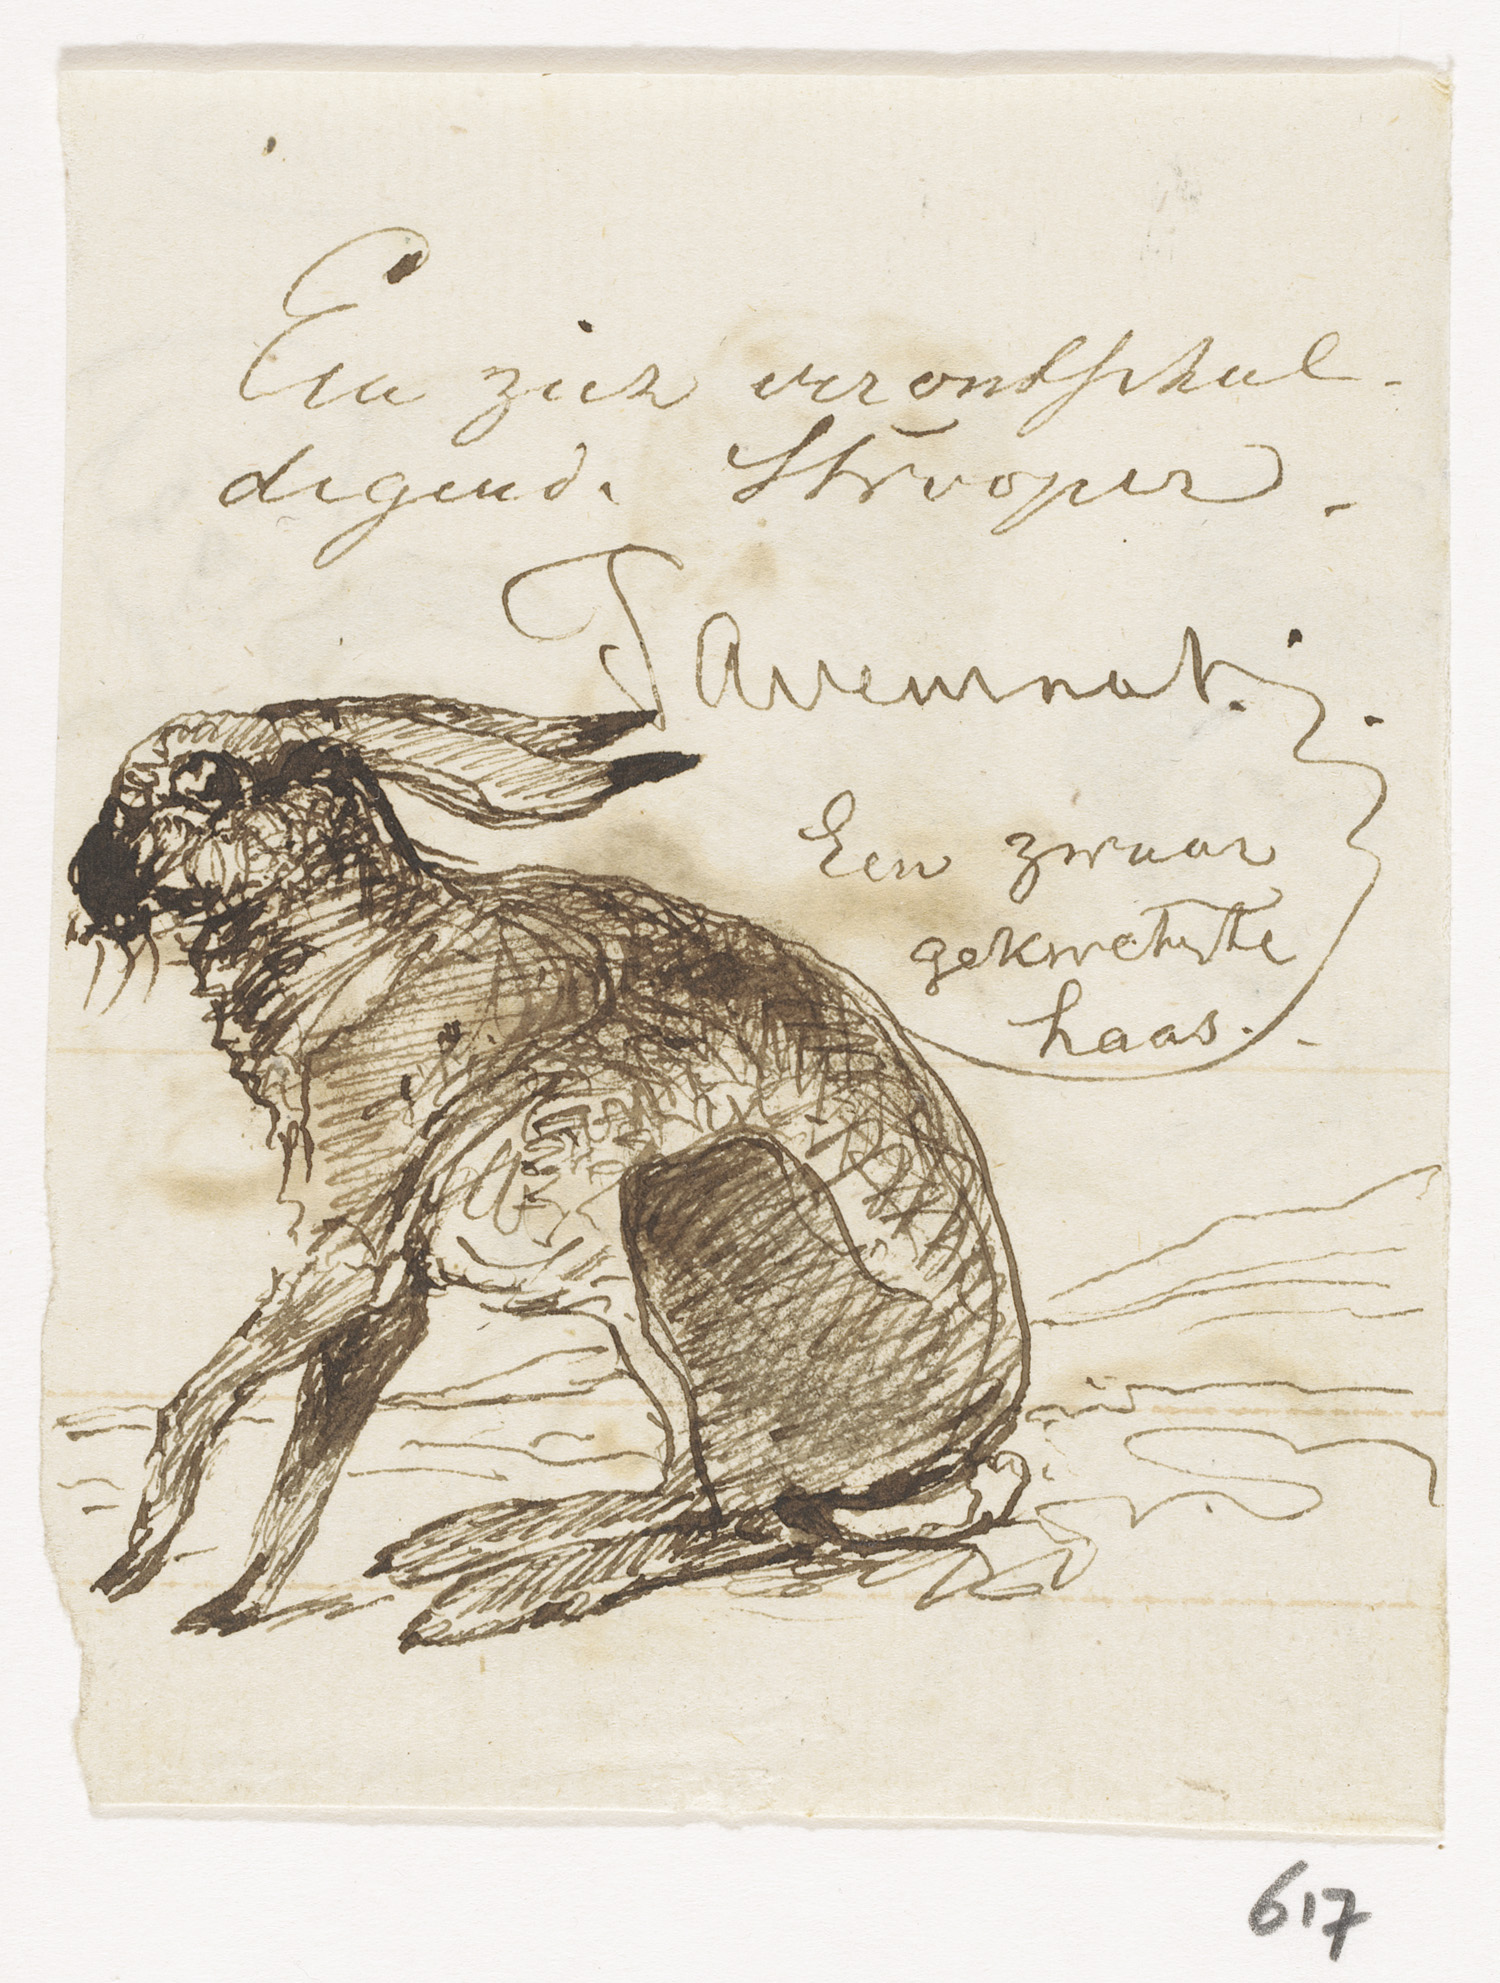 Een zich verontschul-
digend. Strooper.
Een zwaar
gekwetste
haas.
617